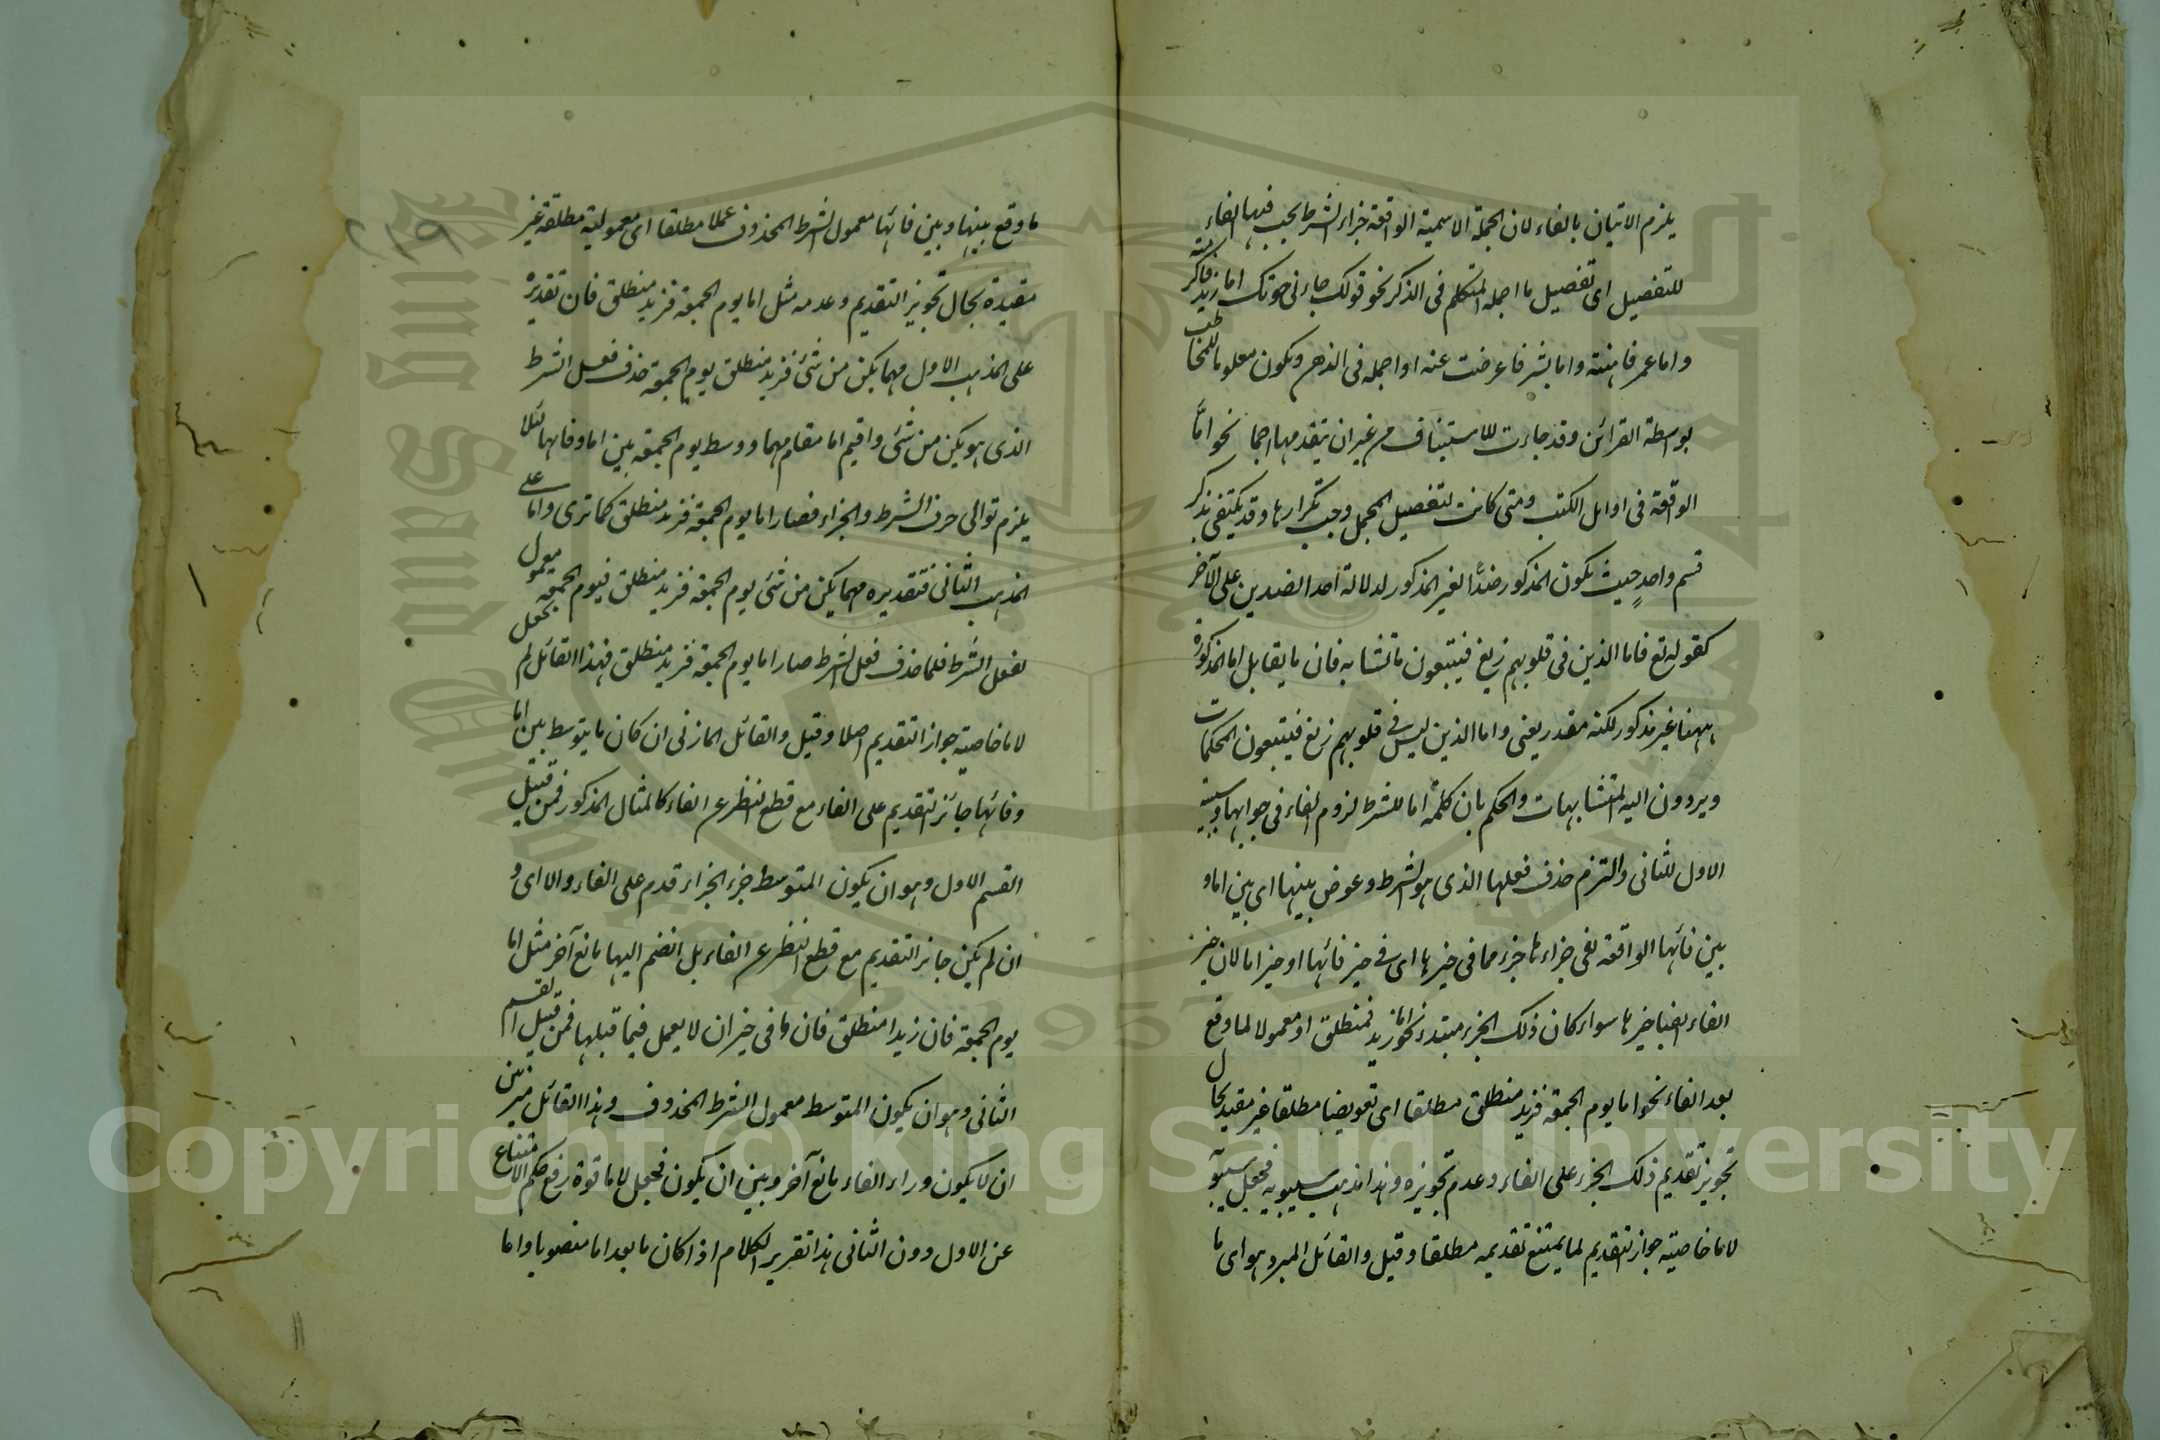 يلزم الاتيان بالفاء لان الجملة الاسمية الواقعة جزاء الشرط يجب فيها الفاء
للتفصيل اى تفصيل ما اجمله المتكلم فى الذكر نحو قولك جاءنى اخوتك اما زيد فاكرمته
واما عمر فاهنته واما بشر فاعرضت عنه او اجمله فى الذهن ويكون معلوما للمخاطب
بواسطة القرائن وقد جاءت للاستيناف من غير ان يتقدمها اجما نحو امّا
الواقعة فى اوايل الكتب ومتى كانت لتفصيل المجمل وجب تكرارها وقد يكتفى بذكر
قسم واحد حيث يكون المذكور ضدًّا لغير المذكور لدلالة احد الضدين على الآخر
كقوله تع فاما الذين فى قلوبهم زيغ فيتبعون ما تشابه فان ما يقابل اما المذكورة
ههنا غير مذكور لكنه مقدر يعنى واما الذين ليس فى قلوبهم زيغ فيتبعون المحكمات
ويردون اليه المتشابهات والحكم بان كلمة اما للشرط لزوم الفاء فى جوابها وسببية
الاول للثانى والتزم حذف فعلها الذى هو الشرط وعوض بينها اى بين اما و
بين فائها الواقعة فى جزاءها جزء مما فى حيزها اى فى حيز فائها او حيز اما لان حيز
الفاء ايضا حيزها سواء كان ذلك الجزء مبتدء نحو اما زيد فمنطلق او معمولا لما وقع
بعد الفاء نحو اما يوم الجمعة فزيد منطلق مطلقا اى تعويضا مطلقا غير مقيد بحال
تجويز تقديم ذلك الجزء على الفاء وعدم تجويزه وهذا مذهب سيبويه فجعل سيبويه
لاما خاصية جواز التقديم لما يمتنع تقديمه مطلقا وقيل والقائل المبرد هو اى ما
٢١٩
ما وقع بينها وبين فائها معمول الشرط المحذوف عملا مطلقا اى معمولية مطلقة غير
مقيدة بحال تجويز التقديم وعدمه مثل اما يوم الجمعة فزيد منطلق فان تقديره
على المذهب الاول مهما يكن من شئ فزيد منطلق يوم الجمعة حذف فعل الشرط
الذى هو يكن من شئ واقيم اما مقام مهما ووسط يوم الجمعة بين اما وفائها لئلا
يلزم توالى حرف الشرط والجزاء فصار اما يوم الجمعة فزيد منطلق كما ترى واما على
المذهب الثانى فتقديره مهما يكن من شئ يوم الجمعة فزيد منطلق فيوم الجمعة معمول
لفعل الشرط فلما حذف فعل الشرط صار اما يوم الجمعة فزيد منطلق فهذا القائل لم يجعل
لاما خاصية جواز التقديم اصلا وقيل والقائل المازنى ان كان ما يتوسط بين اما
وفائها جائز التقديم على الفاء مع قطع النظر عن الفاء كالمثال المذكور فمن قبيل
القسم الاول وهو ان يكون المتوسط جزء الجزاء قدم على الفاء والا اى و
ان لم يكن جائز التقديم مع قطع النظر عن الفاء بل انضم اليها مانع آخر مثل اما
يوم الجمعة فان زيدا منطلق فان ما فى حيز ان لا يعمل فيما قبلها فمن قبيل القسم
الثانى وهو ان يكون المتوسط معمول الشرط المحذوف وهذا القائل ميز بين
ان لا يكون وراء الفاء مانع آخر وبين ان يكون فجعل لاما قوة رفع حكم الامتناع
عن الاول دون الثانى هذا تقرير الكلام اذا كان ما بعد اما منصوبا واما
Copyright © King Saud University
1957